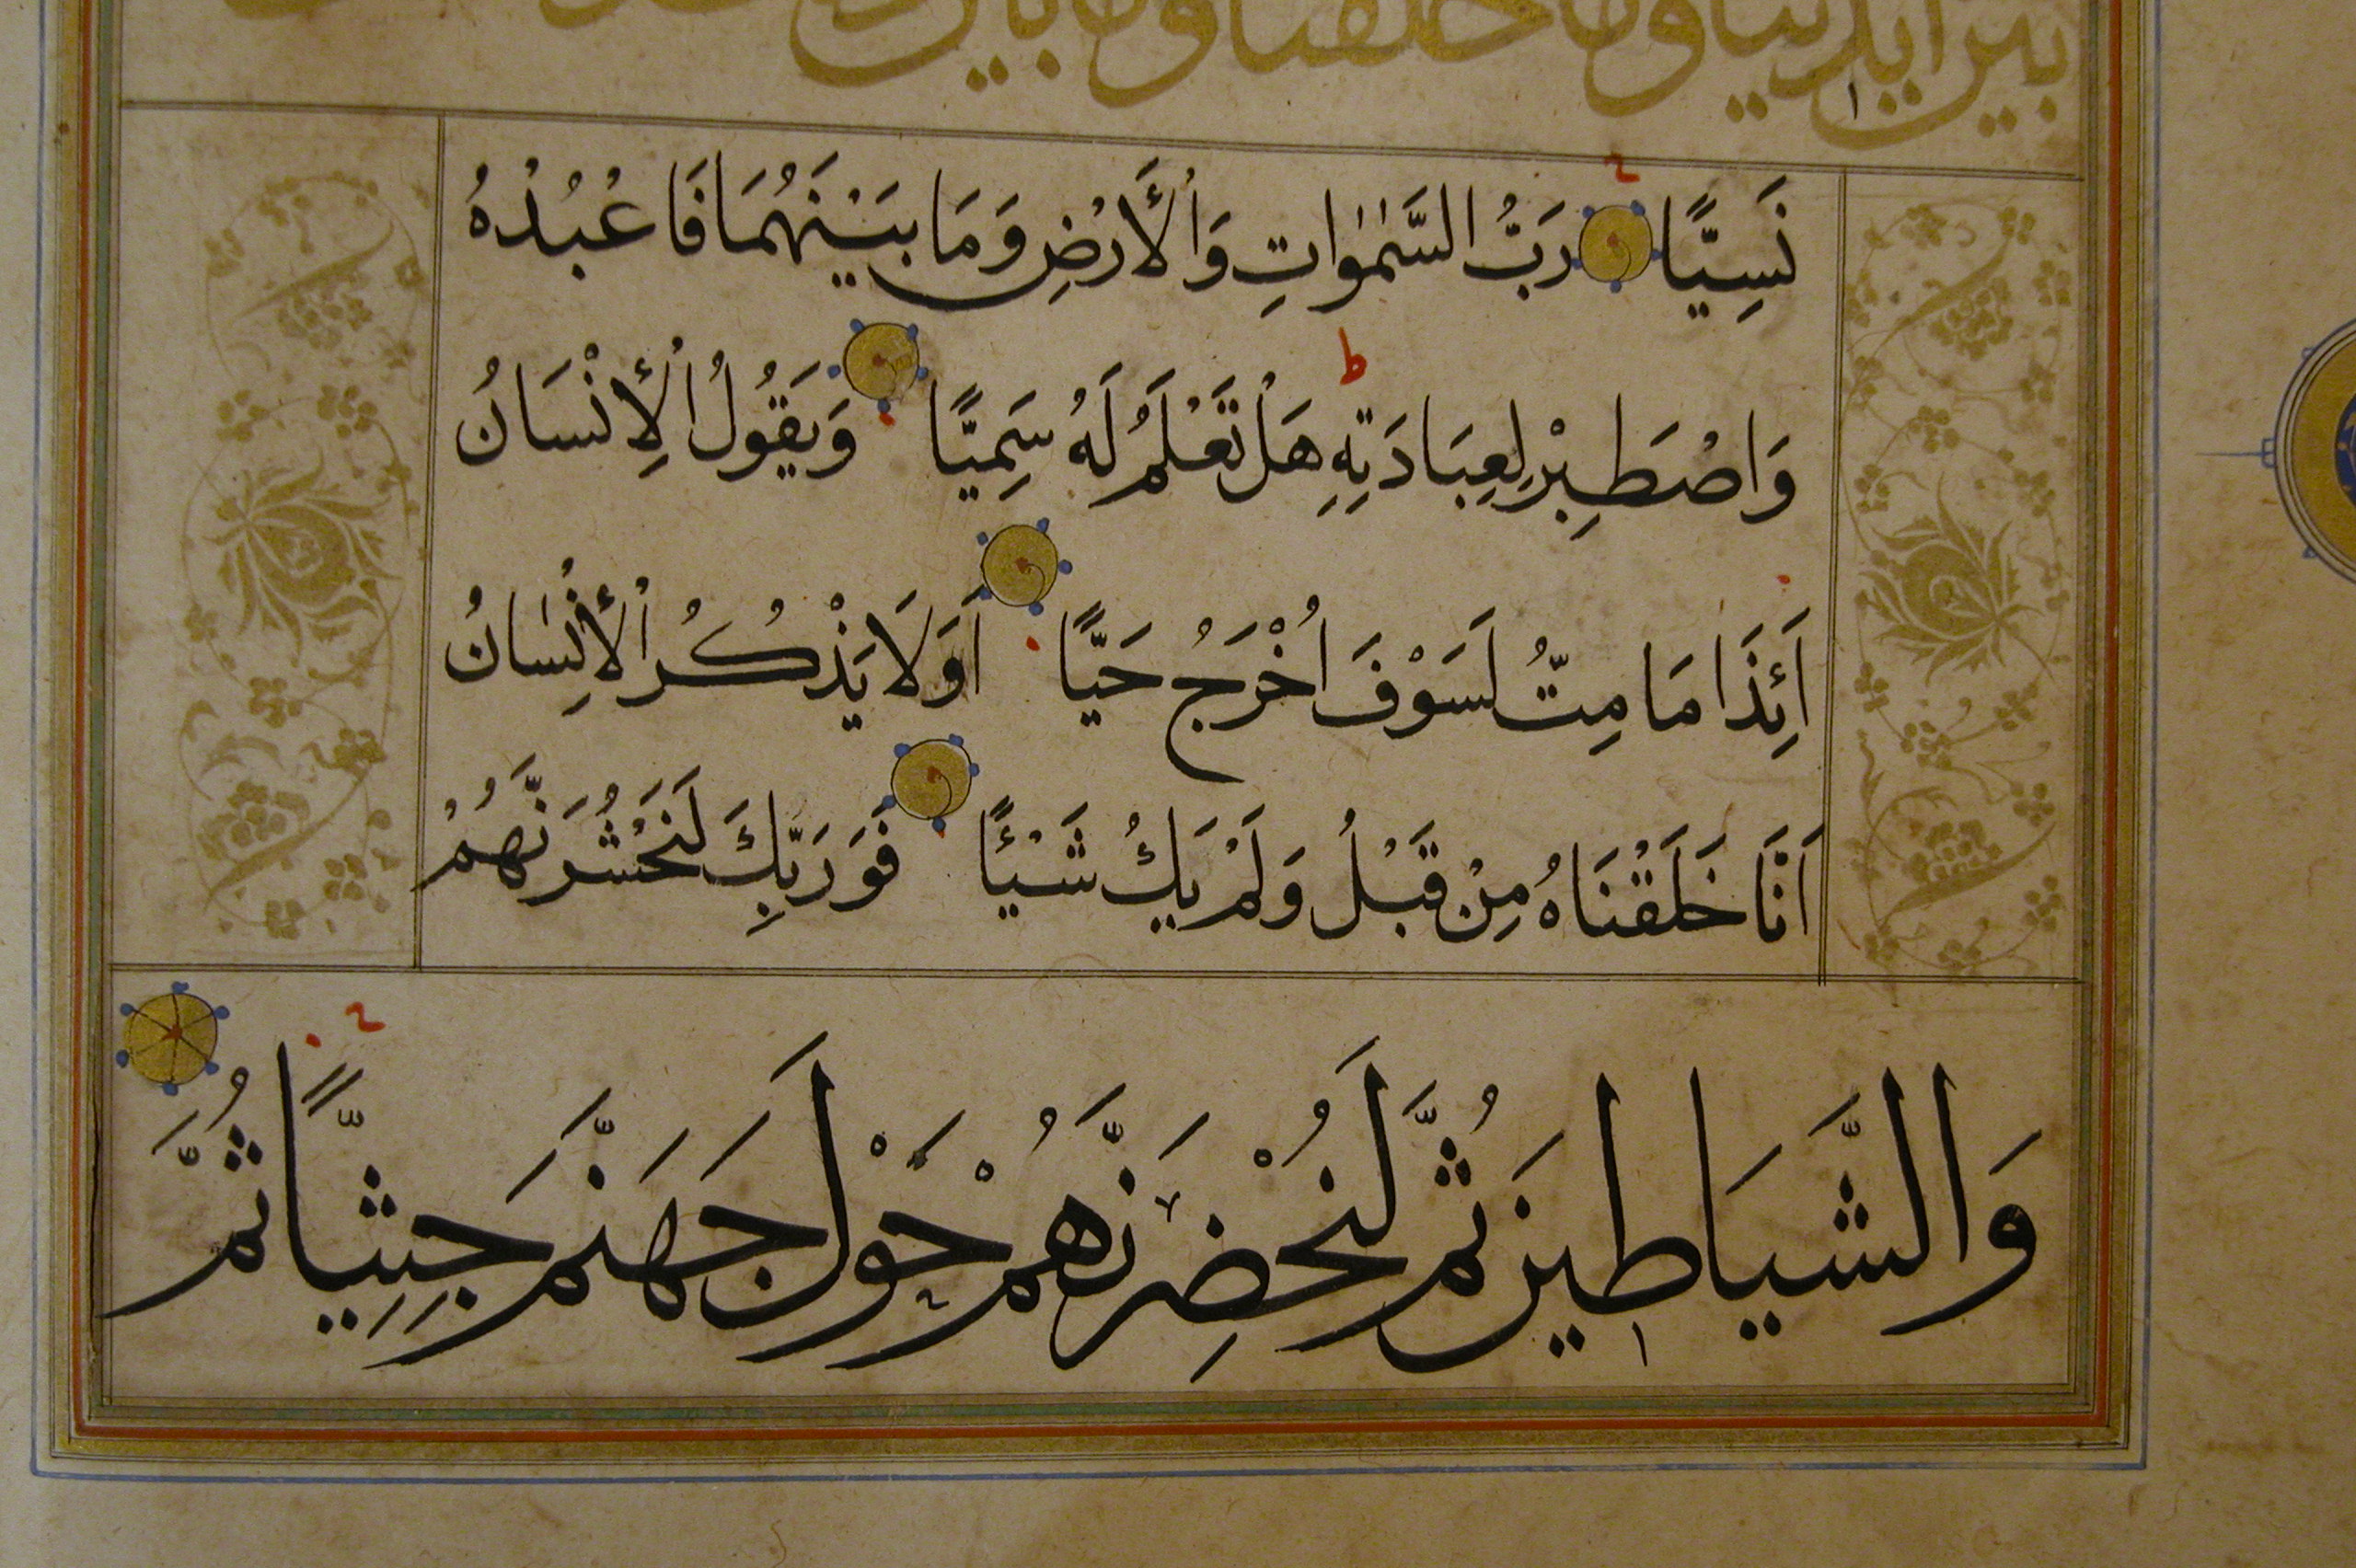 بين ايدينا وما خلفنا وما بين
نَسِيًّا رَبُّ السَّمٰوٰاتِ وَالْأَرْضِ وَمَا بَيْنَهُمَا فَاعْبُدْهُ
وَاصْطَبِرْ لِعِبَادَتِهِ هَلْ تَعْلَمُ لَهُ سَمِيًّا وَيَقُولُ الْإِنْسَانُ
اَئِذَا مَا مِتُّ لَسَوْفَ اُخْرَجُ حَيًّا اَوَلَا يَذْكُرُ الْإِنْسٰانُ
اَنَّا خَلَقْنَاهُ مِنْ قَبْلُ وَلَمْ يَكُ شَيْئًا فَوَرَبِّكَ لَنَحْشُرَنَّهُمْ
وَالشَّيَاطِينَ ثُمَّ لَنُحْضِرَنَّهُمْ حَوْلَ جَهَنَّمَ جِثِيًّا ثُمَّ